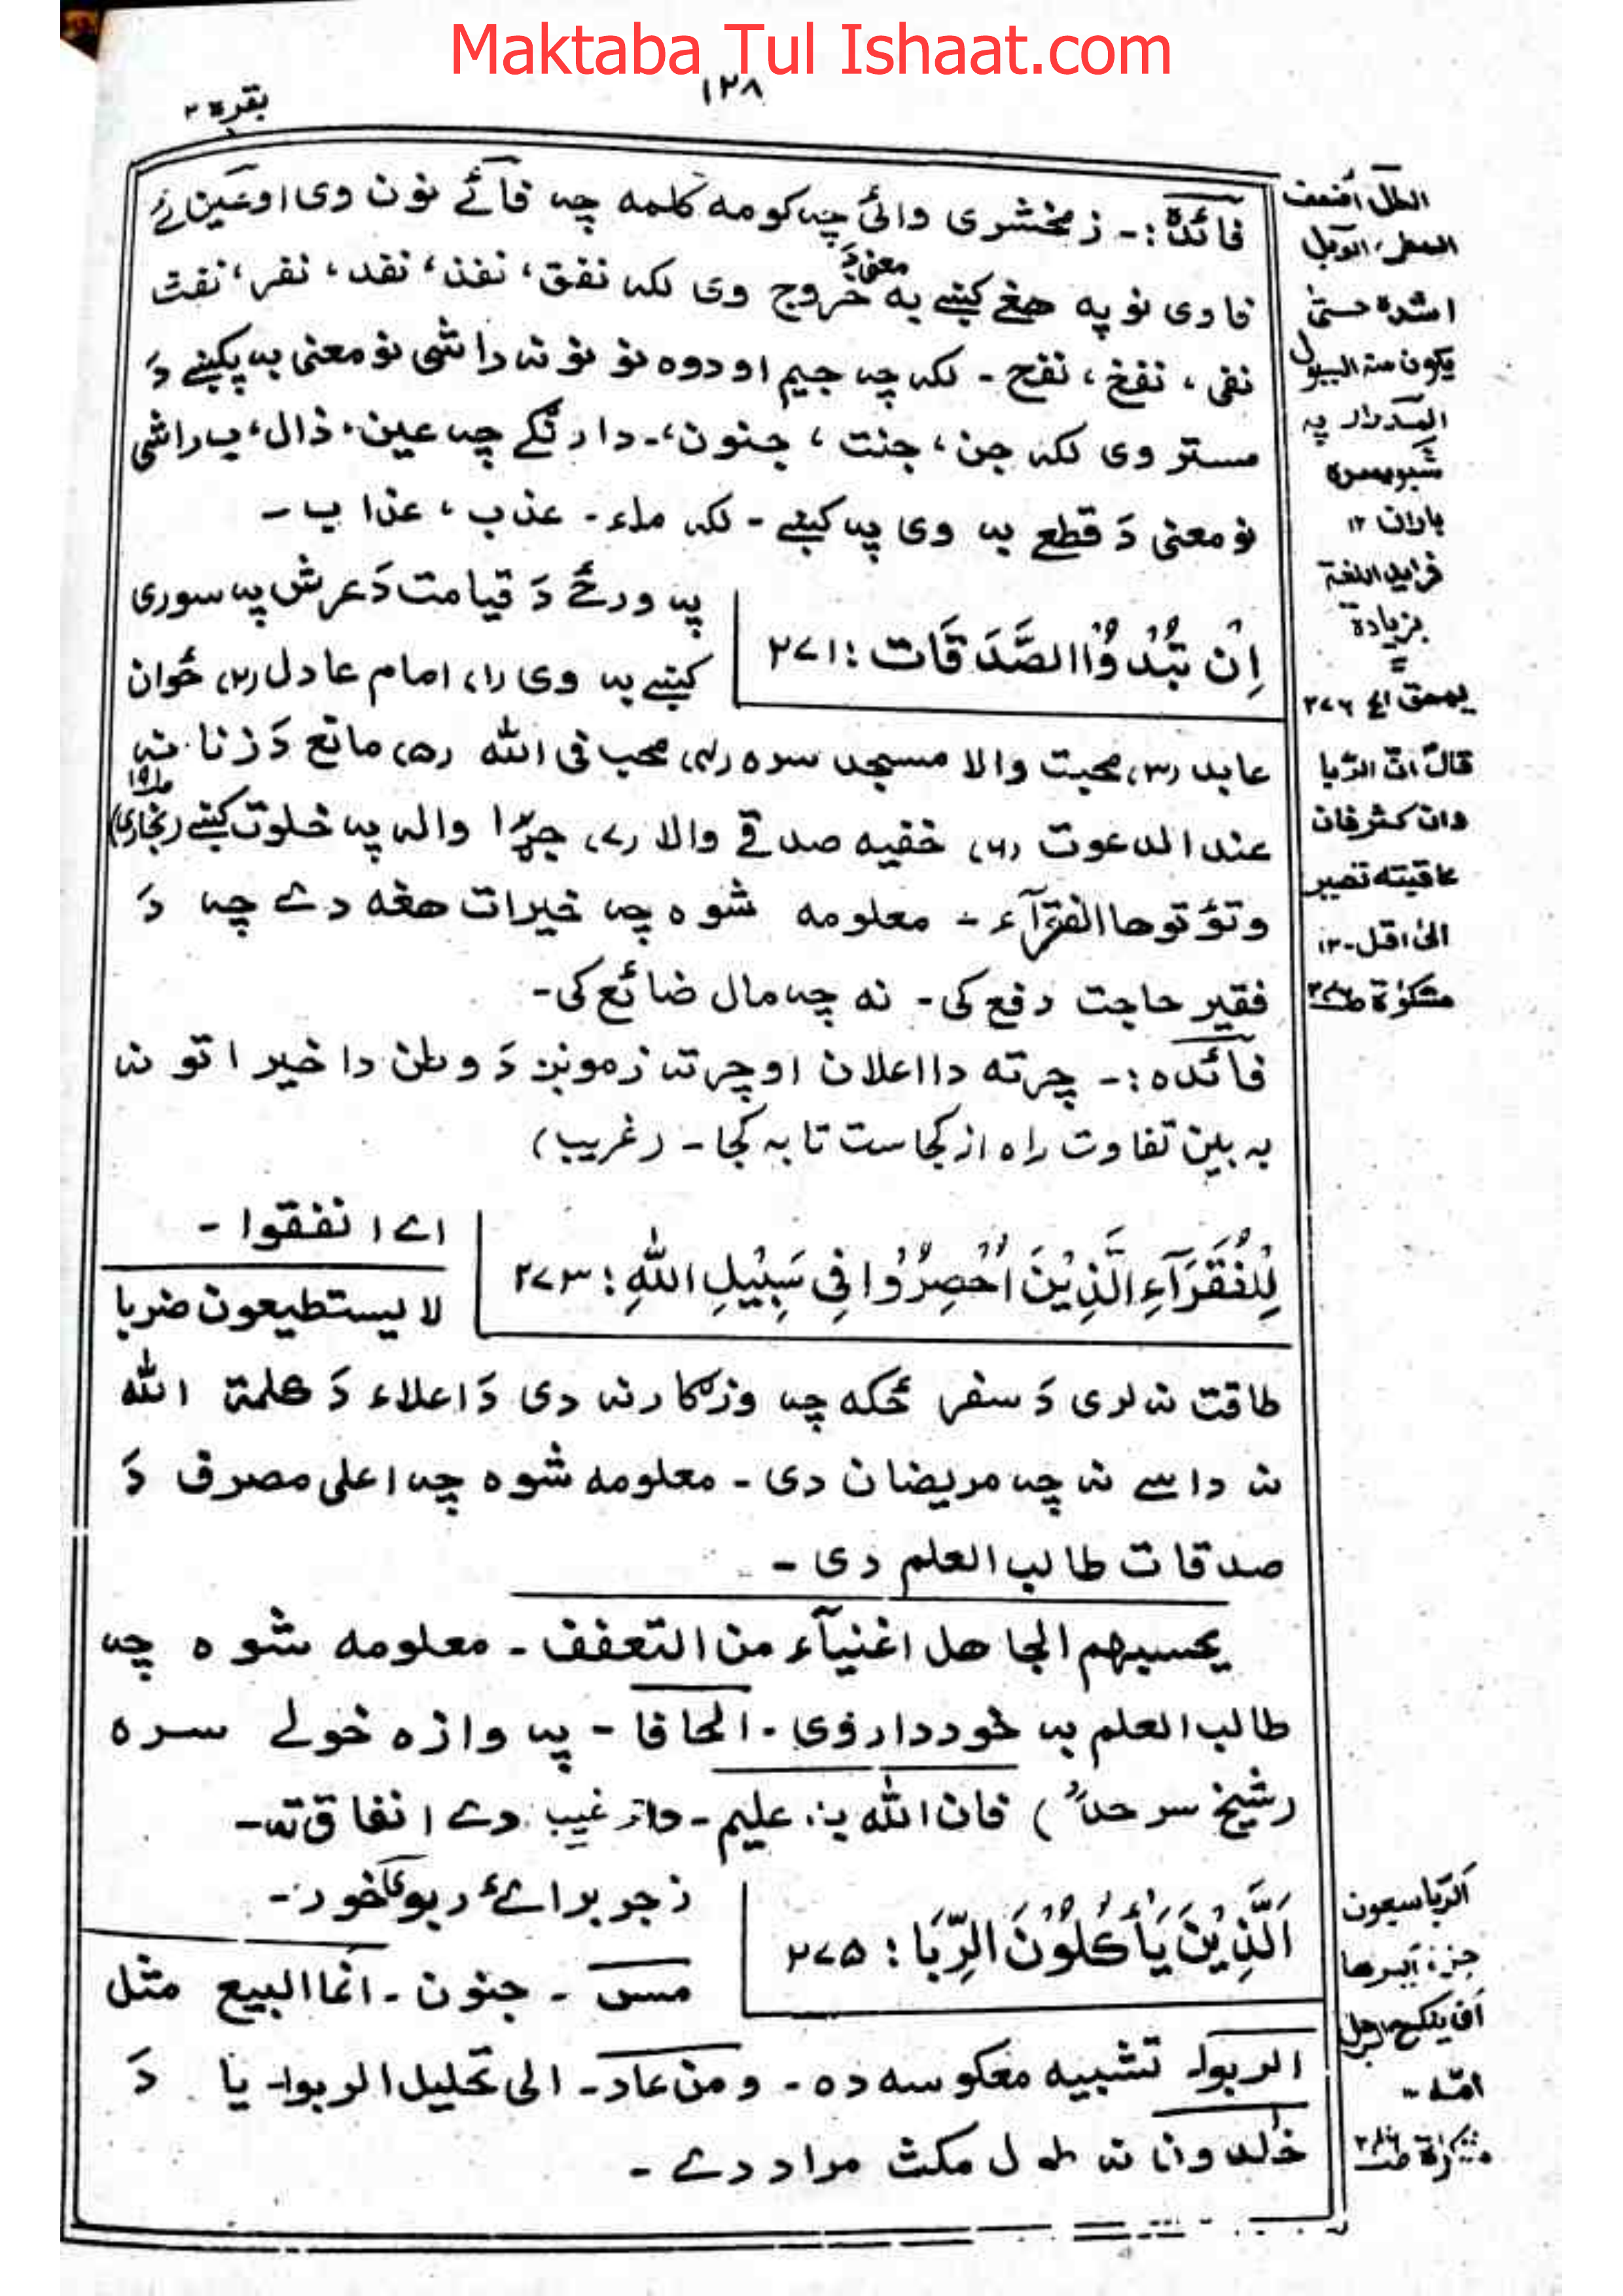 Maktaba Tul Ishaat.com
١٢٨
بقرة ٢
فائدة :- زمخشری وائی چہ کومہ کلمہ چہ فائے نون وی او عین ئے
فا وی نو په هغے کښے به معنی دَ خروج وی لکہ نفق، نفذ، نفد، نفر، نفث
نفی، نفخ، نفح - لکہ چہ جیم او دوہ نو نونہ راشی نو معنی بہ پکښے دَ
مستر وی لکہ جن، جنت، جنون،- دارنگے چہ عین، ذال، ب راشی
نو معنی دَ قطع بہ وی پہ کښے - لکہ ماء - عذب، عذاب -
اِنْ تُبْدُوا الصَّدَقَات : ٢٧١
پہ ورځے دَ قیامت دَ عرش پہ سوری
کښے بہ وی (١) امام عادل (٢) ځوان
عابد (٣) محبت والا مسجد سرہ (٤) محب فی اللہ (٥) مانع دَ زنا نہ
عند الدعوت (٦) خفیہ صدقے والا (٧) جړا والہ پہ خلوت کښے (بخاری)
وتؤتوها الفقرآء - معلومہ شوہ چہ خیرات هغه دے چہ دَ
فقیر حاجت دفع کی - نہ چہ مال ضائع کی -
فائدہ :- چرته دا اعلان او چرتہ زمونږ دَ وطن دا خیراتونہ
بہ بین تفاوت راہ از کجاست تا بہ کجا - (غریب)
لِلْفُقَرَآءِ الَّذِيْنَ اُحْصِرُوْا فِي سَبِيْلِ اللّٰهِ : ٢٧٣
اے انفقوا -
لا یستطیعون ضربا
طاقت نہ لری دَ سفر ځکه چہ وزګار نہ دی دَ اعلاء دَ کلمة اللہ
نہ داسے نہ چہ مریضان دی - معلومہ شوہ چہ اعلی مصرف دَ
صدقات طالب العلم دی -
یحسبهم الجاهل اغنیآء من التعفف - معلومہ شوہ چہ
طالب العلم بہ خوددار وی - الحافا - پہ وازہ خولے سرہ
(شیخ سرحدؒ) فان اللہ بہ علیم - دا ترغیب دے انفاق تہ -
اَلَّذِيْنَ يَأْكُلُوْنَ الرِّبَا : ٢٧٥
زجر برائے ربوٰا خور -
مس - جنون - انما البیع مثل
الربوا - تشبیہ معکوسہ دہ - ومن عاد - الی تحلیل الربوا - یا دَ
خلدون نہ طول مکث مراد دے -
الطل اضعف
المطر، الوبل
اشدہ حتی
یکون منه السیول
المدرار پہ
باران ١٢
فراید اللغة
بزیادة
یمحق الخ ٢٧٦
قال ان الربا
وان کثر فان
عاقبته تصیر
الی اقل - ١٢
مشکوٰة
الربا سبعون
جزء ایسرها
ان ینکح الرجل
امه -
مشکوٰة